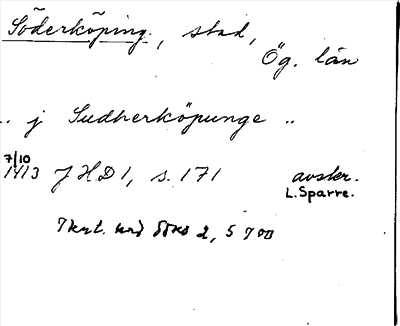 Söderköping, stad,
Ög. län
.. j Sudherköpunge ..
7/10
1413 JHD 1, s. 171 avskr.
L. Sparre.
2, S 700